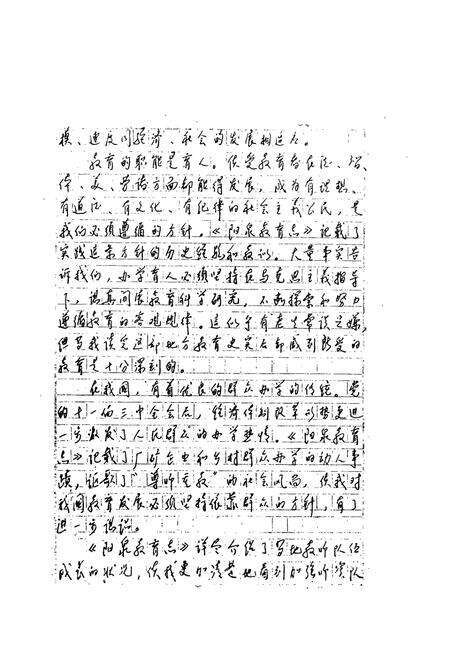 模、速度同经济、社会的发展相适应。
教育的职能是育人。使受教育者在德、智、
体、美、劳诸方面都能得发展，成为有理想、
有道德、有文化、有纪律的社会主义公民，是
我们必须遵循的方针。《阳泉教育志》记载了
实践这条方针的历史经验和教训。大量事实告
诉我们，办学育人必须坚持在马克思主义指导
下，认真开展教育科学研究，不断探索和努力
遵循教育的客观规律。这似乎有老生常谈之嫌，
但当我读完这部地方教育史实后却感到所受的
教育是十分深刻的。
在我国，有着优良的群众办学的传统。党
的十一届三中全会后，经济体制改革形势更进
一步激发了人民群众的办学热情。《阳泉教育
志》记载了厂矿企业和乡村群众办学的动人事
蹟，讴歌了“尊师重教”的社会风尚，使我对
我国教育发展必须坚持依靠群众的方针，有了
进一步认识。
《阳泉教育志》详尽介绍了当地教师队伍
成长的状况，使我更加清楚地看到加强师资队